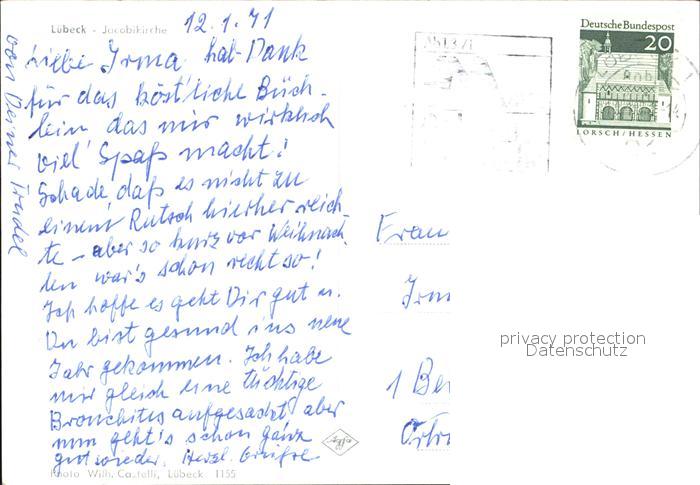 Lübeck - Jacobikirche
12.1.71
Liebe Irma hab Dank
für das köstliche Büch-
lein das mir wirklich
viel Spaß macht!
Schade, daß es nicht zu
einem Rutsch hierher reich
te - aber so kurz vor Weihnach
ten war's schon recht so!
Ich hoffe es geht Dir gut u.
Du bist gesund ins neue
Jahr gekommen. Ich habe
mir gleich eine tüchtige
Bronchitis aufgesackt aber
nun geht's schon ganz
gut wieder. Herzl. Grüße
von Deiner Trudel
Photo Wilh. Castelli, Lübeck 1155
Deutsche Bundespost
20
LORSCH/HESSEN
Frau
Irm
1 Ber
privacy protection
Datenschutz